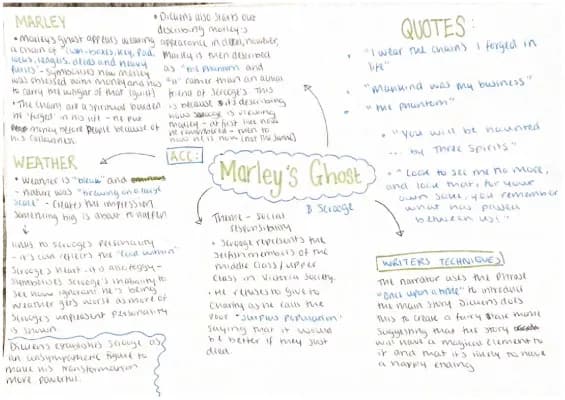 MARLEY
• Marley's ghost appears wearing
a chain of "
and heavy
- symbolises how Marley
was obsessed with money and has
to carry the weight of that (guilt)
• The chains are a spiritual burden
he 'forged' in his life - he put
money before people because of
his callousness.
• Dickens also starts out
describing Marley's
appearance in detail, however,
Marley is then described
as "the phantom" and
"it" rather than an actual
friend of Scrooge's. This
is because it's describing
how Scrooge is viewing
Marley - at first like how
he remembered - then to
how he is now (not the same)
QUOTES:
• "I wear the chains I forged in
life"
• "Mankind was my business"
• "the phantom"
• "You will be haunted
... by three spirits"
• "Look to see me no more,
and look that, for your
own sake, you remember
what has passed
between us!"
ACC:
Marley's Ghost
& Scrooge
WEATHER
• Weather is "bleak" and
- nature was "brewing on a large
scale" - creates the impression
something big is about to happen
links to Scrooge's personality
- it's cold reflects the "cold within"
Scrooge's heart - it
symbolises Scrooge's inability to
see how ignorant he's being
weather gets worse as more of
Scrooge's unpleasant personality
is shown.
Dickens establishes Scrooge as
an unsympathetic figure to
make his transformation
more powerful.
Theme - Social
responsibility
• Scrooge represents the
selfish members of the
middle class / upper
class in Victorian society.
• He refuses to give to
charity as he calls the
poor "surplus population"
saying that it would
be better if they just
died.
WRITERS TECHNIQUES
The narrator uses the phrase
"Once upon a time" to introduce
the main story. Dickens does
this to create a fairy tale
suggesting that the story
will have a magical element to
it and that it's likely to have
a happy ending